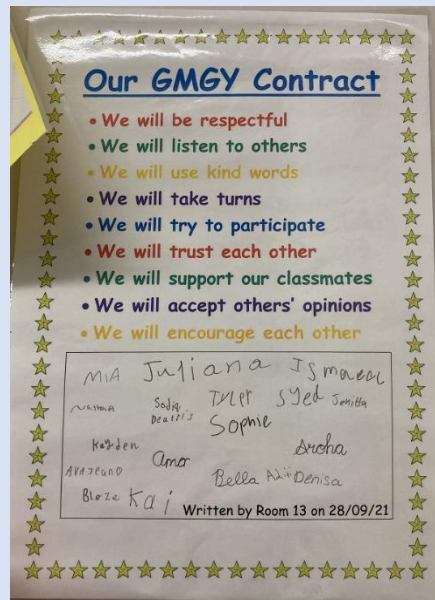 Our GMGY Contract
• We will be respectful
• We will listen to others
• We will use kind words
• We will take turns
• We will try to participate
• We will trust each other
• We will support our classmates
• We will accept others' opinions
• We will encourage each other
MIA Juliana Ismaeel
Tyler Syed Jonitta
Sophie
Kayden Aroha
Amar
Bella Denisa
Blaze Kai
Written by Room 13 on 28/09/21